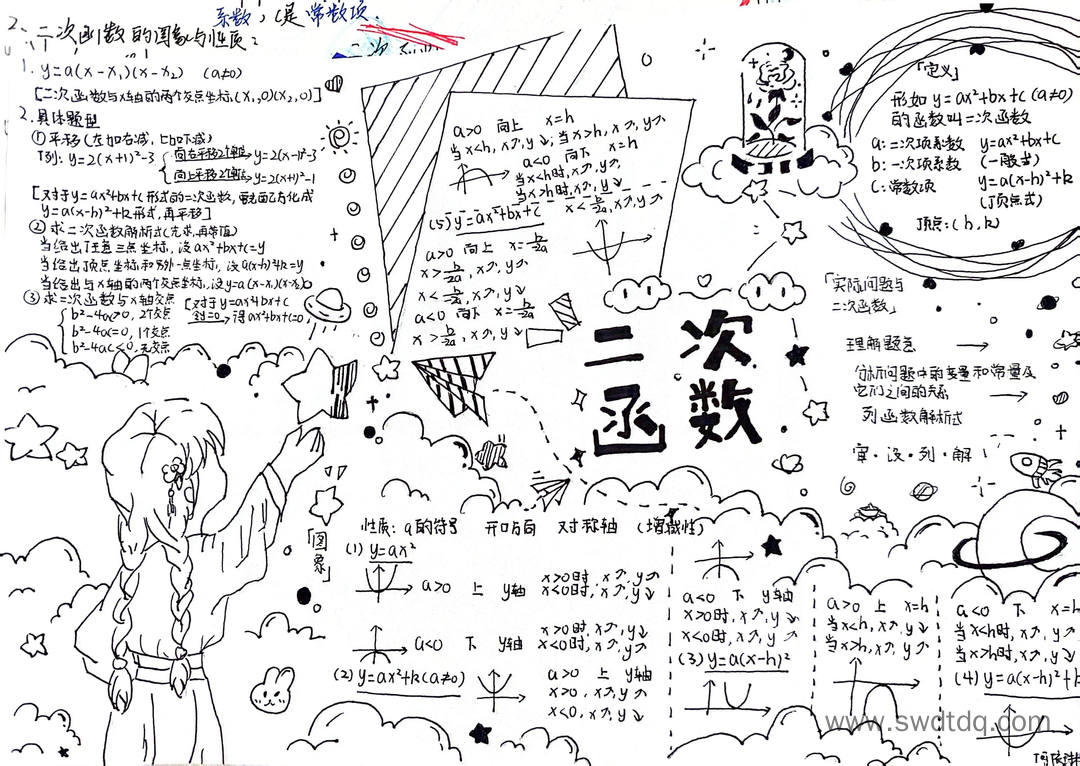 系数, C是 常数项.
2. 二次函数的图象与性质:
二次
1. y=a(x-x₁)(x-x₂) (a≠0)
[二次函数与x轴的两个交点坐标,(x₁,0)(x₂,0)]
2. 具体题型
①平移(左加右减,上加下减)
例: y=2(x+1)²-3
向右平移2个单位 y=2(x-1)²-3
向上平移2个单位 y=2(x+1)²-1
[对于y=ax²+bx+c形式的二次函数,要先配方化成
y=a(x-h)²+k形式,再平移]
②求二次函数解析式(先求,再带值)
当给出任意三点坐标,设ax²+bx+c=y
当给出顶点坐标和另外一点坐标,设a(x-h)²+k=y
当给出与x轴的两个交点坐标,设y=a(x-x₁)(x-x₂)
③求二次函数与x轴交点
b²-4ac>0, 2个交点
b²-4ac=0, 1个交点
b²-4ac<0, 无交点
[对于y=ax²+bx+c
令y=0 得ax²+bx+c=0
a>0 向上 x=h
当x<h, x↗, y↘; 当x>h, x↗, y↗
a<0 向下 x=h
当x<h时, x↗, y↗
当x>h时, x↗, y↘
(5) y=ax²+bx+c
x<-b/2a, x↗, y↗
a>0 向上 x=-b/2a
x>-b/2a, x↗, y↗
x<-b/2a, x↗, y↘
a<0 向下 x=-b/2a
x>-b/2a, x↗, y↘
二次
函数
「定义」
形如y=ax²+bx+c (a≠0)
的函数叫二次函数
a: 二次项系数 y=ax²+bx+c
b: 一次项系数 (一般式)
C: 常数项 y=a(x-h)²+k
(顶点式)
顶点:(h,k)
「实际问题与
二次函数」
理解题意
分析问题中的变量和常量及
它们之间的关系
列函数解析式
审·设·列·解
「图象」
性质: a的符号 开口方向 对称轴 (增减性)
(1) y=ax²
a>0 上 y轴
x>0时, x↗, y↗
x<0时, x↗, y↘
a<0 下 y轴
x>0时, x↗, y↘
x<0时, x↗, y↗
(2) y=ax²+k(a≠0)
a>0 上 y轴
x>0, x↗, y↗
x<0, x↗, y↘
a<0 下 y轴
x>0时, x↗, y↘
x<0时, x↗, y↗
(3) y=a(x-h)²
a>0 上 x=h
当x<h, x↗, y↘
当x>h, x↗, y↗
a<0 下 x=h
当x<h时, x↗, y↗
当x>h时, x↗, y↘
(4) y=a(x-h)²+k
www.swdtdq.com